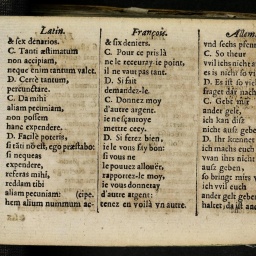 Latin.
& sex denarios.
C. Tanti æstimatum
non accipiam,
neque enim tantum valet.
D. Certè tantùm,
percunctare.
C. Da mihi
aliam pecuniam,
non possem
hanc expendere.
D. Facilè poteris,
si tāti nō est, ego præstabo:
si nequeas
expendere,
referas mihi,
reddam tibi
aliam pecuniam: (cipe.
hem alium nummum ac-
François.
& six deniers.
C. Pour ce pris là
ne le receuray-ie point,
il ne vaut pas tant.
D. Si fait
demandez-le.
C. Donnez moy
d'autre argent.
ie ne sçauroye
mettre cecy.
D. Si ferez bien,
ie le vous fay bon:
si vous ne
le pouuez allouër,
rapportez-le moy,
ie vous donneray
d'autre argent:
tenez en voilà vn autre.
Allem
vnd sechs pfen
C. So thewr
vvil ichs nicht
es is nicht so vi
D. Es ist so viel
fraget dar nach
C. Gebt mir
ander gelt,
ich kan diß
nicht auß gebe
D. Ihr koennet
ich machs euch
vvan ihrs nicht
auß geben,
so bringt mirs
ich vvil euch
ander gelt geben
haltet, da ist and